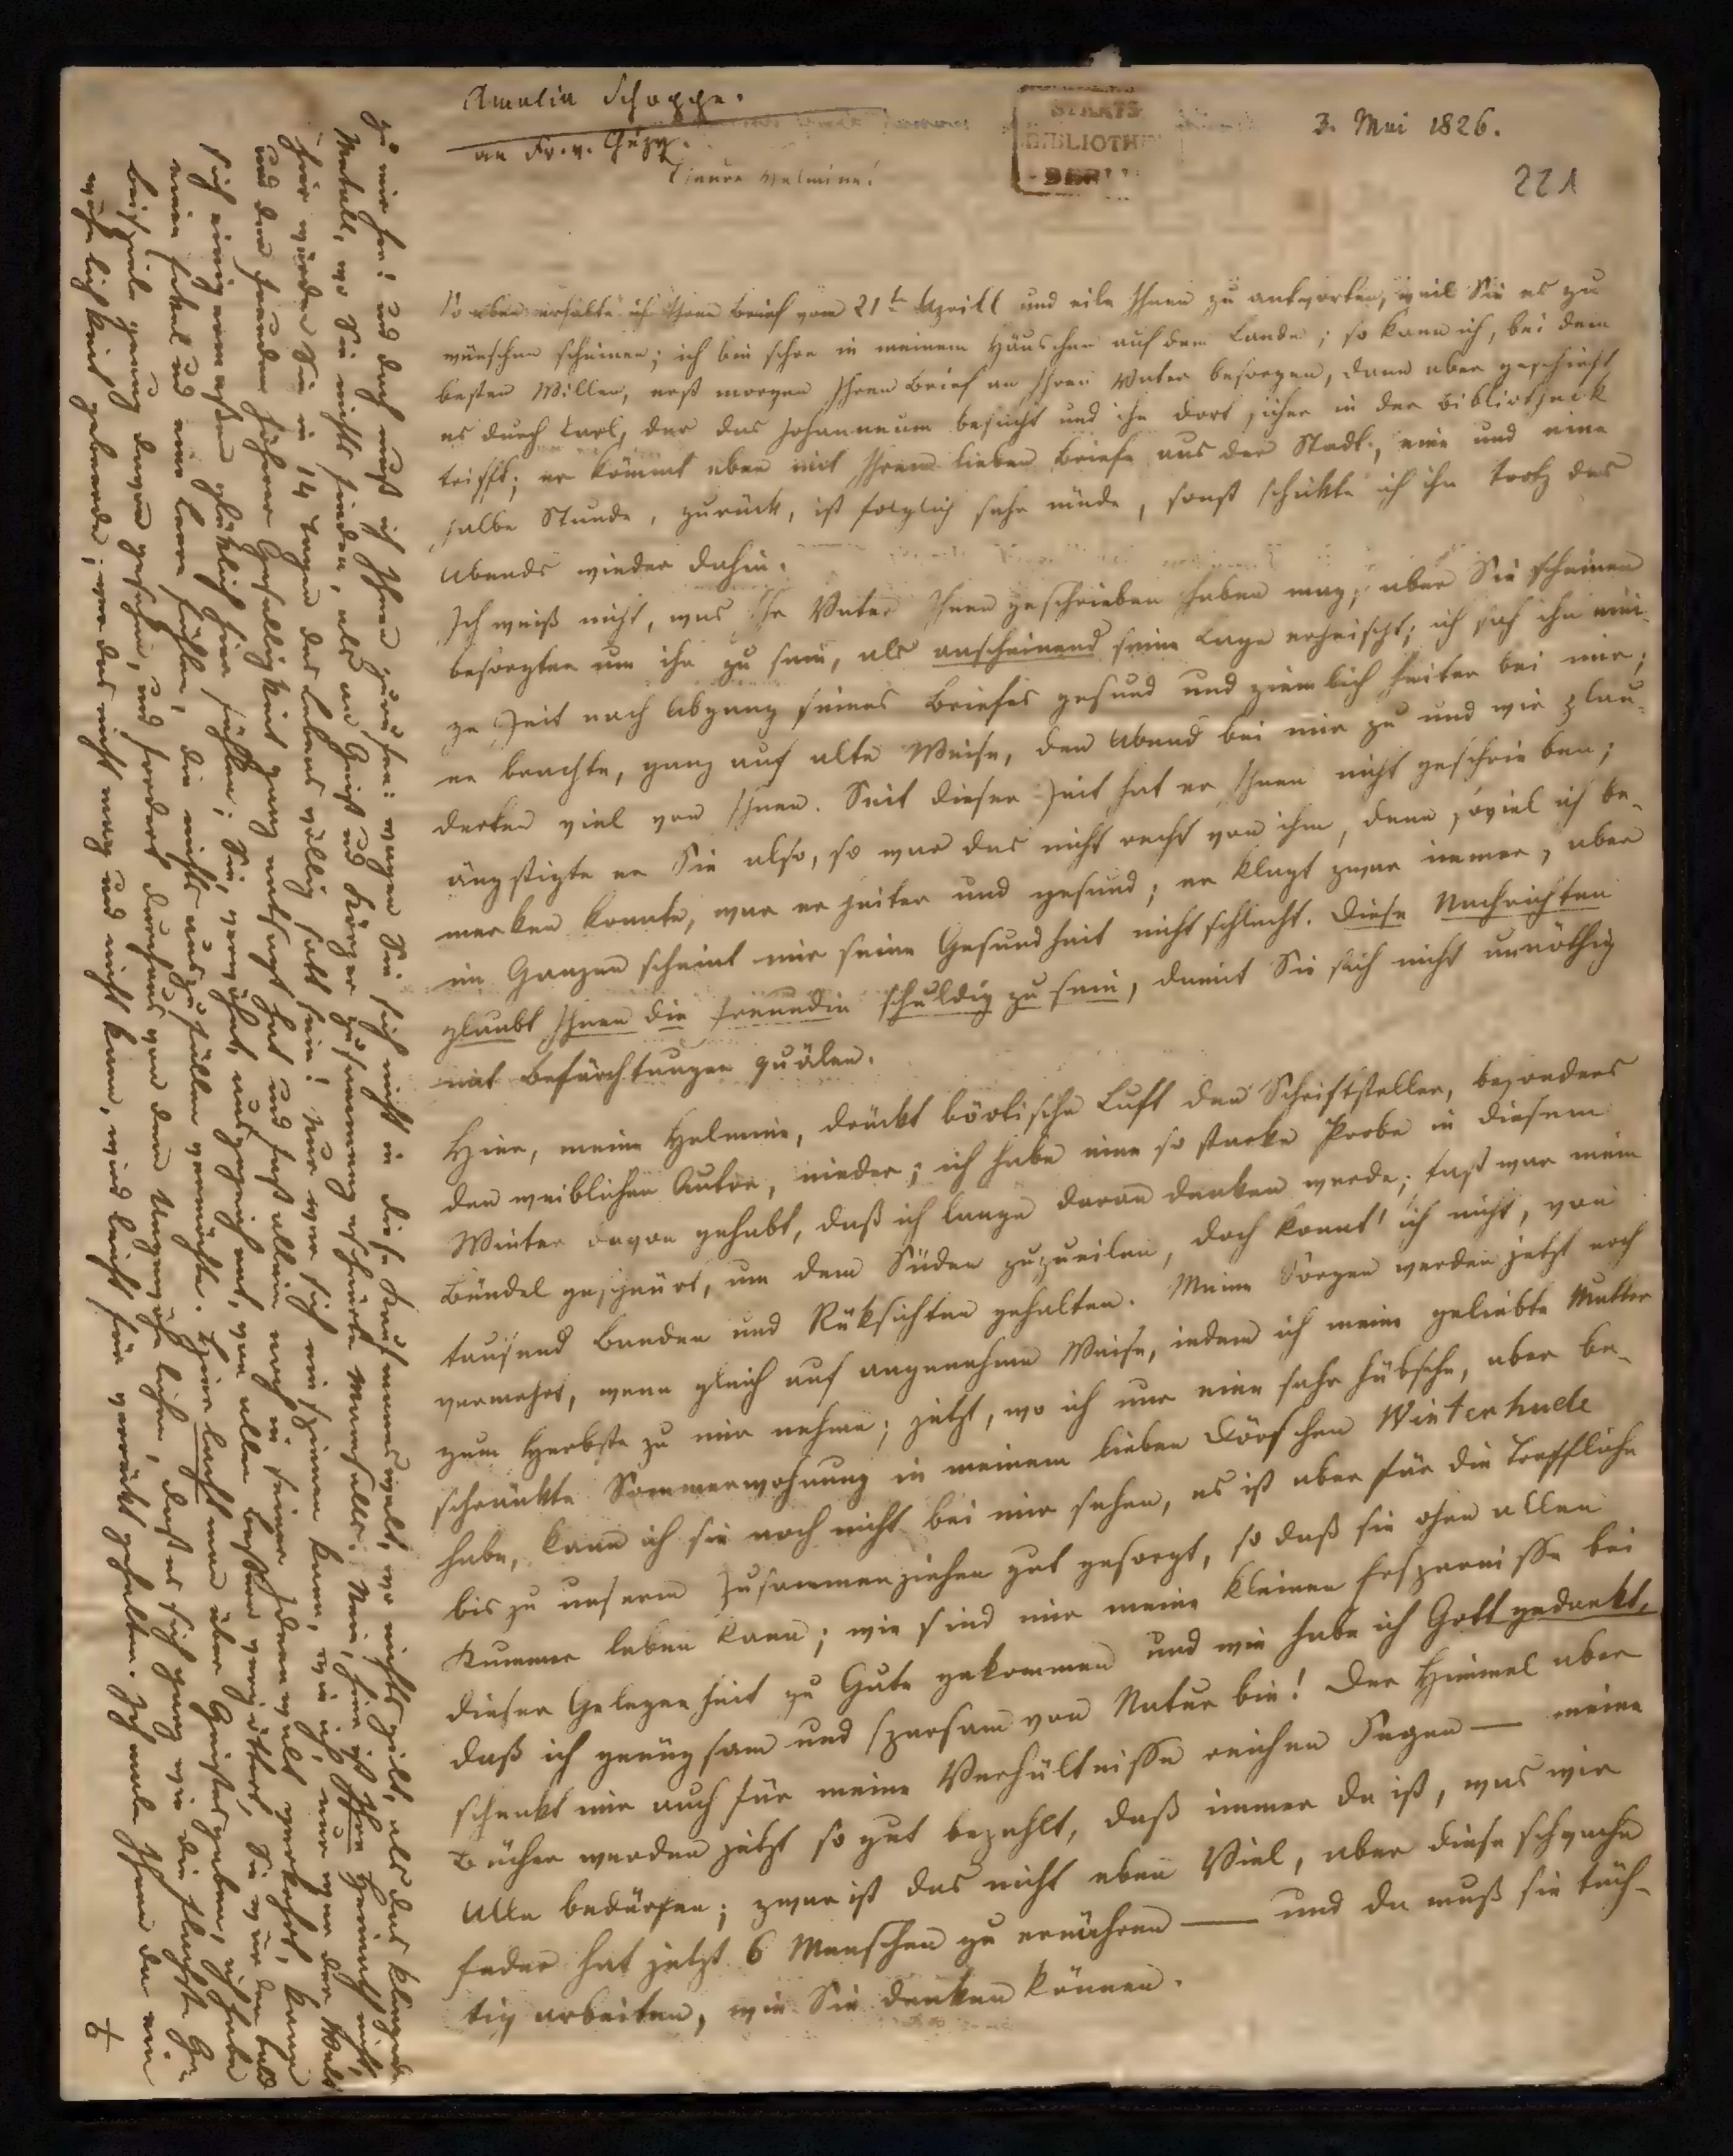 Amalia Schoppe.
an Fr. v. Chézy.
3. Mai 1826.
STAATS
BIBLIOTHEK
BERLIN
221
Theure Helmine!
So eben erhalte ich Ihren Brief vom 21t April und eile Ihnen zu antworten, weil Sie es zu
wünschen scheinen; ich bin schon in meinem Häuschen auf dem Lande; so kann ich, bei dem
besten Willen, erst morgen Ihren Brief an Ihren Vater besorgen, dann aber geschieht
es durch Carl, der das Johanneum besucht und ihn dort sicher in der Bibliotheck
trifft; er kömmt eben mit Ihrem lieben Briefe aus der Stadt, eine und eine
halbe Stunde, zurück, ist folglich sehr müde, sonst schikte ich ihn trotz des
Abends wieder dahin.
Ich weiß nicht, was Ihr Vater Ihnen geschrieben haben mag, aber Sie scheinen
besorgter um ihn zu sein, als anscheinend seine Lage erheischt; ich sah ihn eini-
ge Zeit nach Abgang seines Briefes gesund und ziemlich heiter bei mir;
er brachte, ganz auf alte Weise, den Abend bei mir zu und wir plau-
derten viel von Ihnen. Seit dieser Zeit hat er Ihnen nicht geschrieben;
ängstigte er Sie also, so war das nicht recht von ihm, denn soviel ich be-
merken konnte, war er heiter und gesund; er klagt zwar immer, aber
im Ganzen scheint mir seine Gesundheit nicht schlecht. Diese Nachrichten
glaubt Ihnen die Freundin schuldig zu sein, damit Sie sich nicht unnöthig
mit Befürchtungen quälen.
Hier, meine Helmine, drückt böotische Luft den Schriftsteller, besonders
den weiblichen Autor, nieder; ich habe eine so starke Probe in diesem
Winter davon gehabt, daß ich lange daran denken werde; fast war mein
Bündel geschnürt, um dem Süden zuzueilen, doch konnt' ich nicht, von
tausend Banden und Rüksichten gehalten. Meine Sorgen werden jetzt noch
vermehrt, wenn gleich auf angenehme Weise, indem ich meine geliebte Mutter
zum Herbste zu mir nehme; jetzt, wo ich nur eine sehr hübsche, aber be-
schränkte Sommerwohnung in meinem lieben Dörfchen Winterhude
habe, kann ich sie noch nicht bei mir sehen, es ist aber für die Treffliche
bis zu unserm Zusammenziehen gut gesorgt, so daß sie ohne allen
Kummer leben kann; wie sind mir meine kleinen Ersparnisse bei
dieser Gelegenheit zu Gute gekommen und wie habe ich Gott gedankt,
daß ich genügsam und sparsam von Natur bin! Der Himmel aber
schenkt mir auch für meine Verhältnisse reichen Segen — meine
Bücher werden jetzt so gut bezahlt, daß immer da ist, was wir
Alle bedürfen; zwar ist das nicht eben Viel, aber diese schwache
Feder hat jetzt 6 Menschen zu ernähren — und da muß sie tüch-
tig arbeiten, wie Sie denken können.
zu mir her! und doch muß ich Ihnen zurufen: wagen Sie sich nicht in diese Kaufmannswelt, wo nichts gilt, als das klingende
Metall, wo Sie nichts finden, als an Geist und Körper zusammengeschnürte Mamsells. Nein, hier ist Ihre Heimath nicht,
hier würden Sie in 14 Tagen des Lebens völlig satt sein! Nur wer sich einspinnen kann, wie ich, nur wer der Welt
und den Freuden höherer Geselligkeit ganz entsagt hat und fast allein noch in seiner Ideenwelt verkehrt, kann
sich einigermaßen glüklich hier fühlen; Sie, verwöhnt, ausgezeichnet, von allen Bessern vergöttert, Sie würden bald
einen Ekel und eine Leere fühlen, die nichts auszufüllen vermöchte. Hier lacht man über Geistesgaben, ich habe
Beispiele genug davon gesehen, und fordert durchaus von dem Ungewöhnlichen, daß es sich ganz wie die flachste Ge-
wöhnlichkeit geberde; wer das nicht mag und nicht kann, wird leicht für verrükt gehalten. Ich male Ihnen da ein